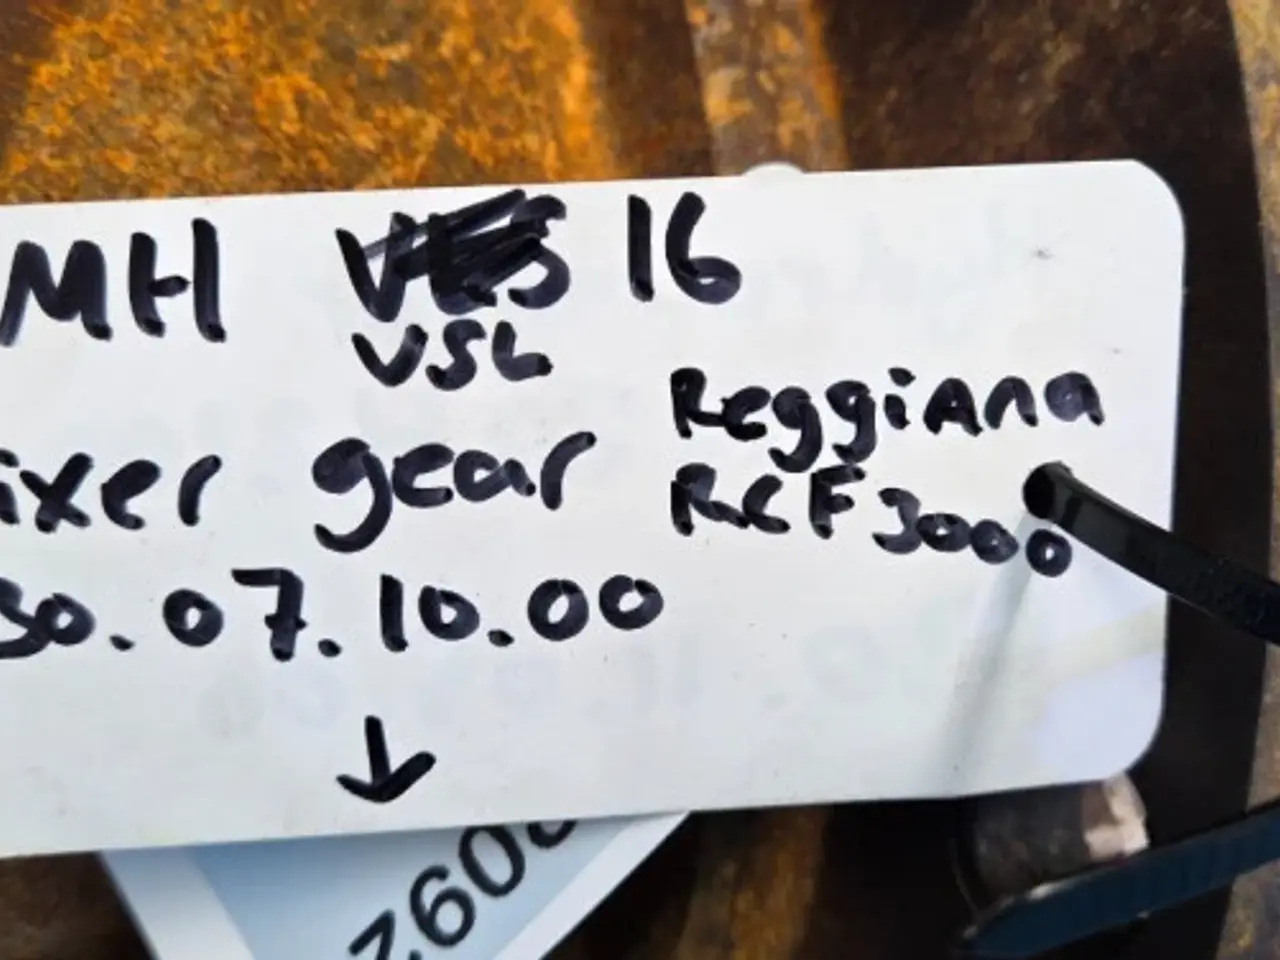 MH VES 16
VSL
ixer gear
Reggiana
RCF 3000
30.07.10.00
↓